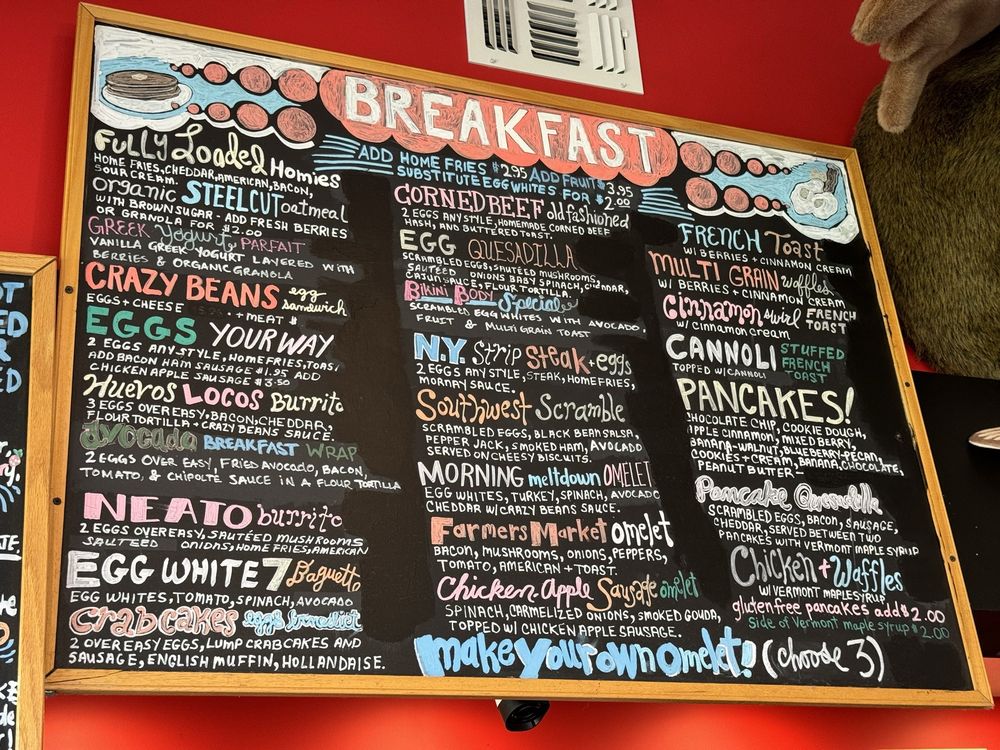 BREAKFAST
ADD HOME FRIES $2.95 ADD FRUIT $3.95
SUBSTITUTE EGG WHITES FOR $2.00
FULLY Loaded Homies
HOME FRIES, CHEDDAR, AMERICAN, BACON,
SOUR CREAM.
organic STEELCUT oatmeal
WITH BROWN SUGAR - ADD FRESH BERRIES
OR GRANOLA FOR $2.00
GREEK Yogurt PARFAIT
VANILLA GREEK YOGURT LAYERED WITH
BERRIES & ORGANIC GRANOLA
CRAZY BEANS egg sandwich
EGGS + CHEESE + MEAT $
EGGS YOUR WAY
2 EGGS ANY STYLE, HOME FRIES, TOAST
ADD BACON HAM SAUSAGE $1.95 ADD
CHICKEN APPLE SAUSAGE $3.50
Huevos LOCOS Burrito
3 EGGS OVER EASY, BACON, CHEDDAR,
FLOUR TORTILLA + CRAZY BEANS SAUCE.
avocado BREAKFAST WRAP
2 EGGS OVER EASY, FRIED AVOCADO, BACON,
TOMATO, & CHIPOTLE SAUCE IN A FLOUR TORTILLA
NEATO burrito
2 EGGS OVER EASY, SAUTÉED MUSHROOMS
SAUTEED ONIONS, HOME FRIES, AMERICAN
EGG WHITE 7 Baguette
EGG WHITES, TOMATO, SPINACH, AVOCADO
crabcakes eggs benedict
2 OVER EASY EGGS, LUMP CRAB CAKES AND
SAUSAGE, ENGLISH MUFFIN, HOLLANDAISE.
CORNED BEEF old fashioned
2 EGGS ANY STYLE, HOMEMADE CORNED BEEF
HASH, AND BUTTERED TOAST.
EGG QUESADILLA
SCRAMBLED EGGS, SAUTÉED MUSHROOMS,
SAUTEED ONIONS BABY SPINACH, CHEDDAR,
CAJUN SAUCE, FLOUR TORTILLA.
Bikini Body Special
SCRAMBLED EGG WHITES WITH AVOCADO,
FRUIT & MULTI GRAIN TOAST
N.Y. Strip Steak + eggs
2 EGGS ANY STYLE, STEAK, HOME FRIES,
MORNAY SAUCE.
Southwest Scramble
SCRAMBLED EGGS, BLACK BEAN SALSA,
PEPPER JACK, SMOKED HAM, AVOCADO
SERVED ON CHEESY BISCUITS.
MORNING meltdown OMELET
EGG WHITES, TURKEY, SPINACH, AVOCADO
CHEDDAR W/ CRAZY BEANS SAUCE.
Farmers Market omelet
BACON, MUSHROOMS, ONIONS, PEPPERS,
TOMATO, AMERICAN + TOAST.
Chicken Apple Sausage omlet
SPINACH, CARMELIZED ONIONS, SMOKED GOUDA,
TOPPED W/ CHICKEN APPLE SAUSAGE.
make your own Omelet! (choose 3)
FRENCH Toast
W/ BERRIES + CINNAMON CREAM
MULTI GRAIN waffles
W/ BERRIES + CINNAMON CREAM
Cinnamon swirl FRENCH TOAST
W/ cinnamon cream
CANNOLI STUFFED FRENCH TOAST
TOPPED W/ CANNOLI
PANCAKES!
CHOCOLATE CHIP, COOKIE DOUGH,
APPLE CINNAMON, MIXED BERRY,
BANANA-WALNUT, BLUEBERRY-PECAN,
COOKIES + CREAM, BANANA, CHOCOLATE,
PEANUT BUTTER
Pancake Quesadilla
SCRAMBLED EGGS, BACON, SAUSAGE,
CHEDDAR, SERVED BETWEEN TWO
PANCAKES WITH VERMONT MAPLE SYRUP
Chicken + Waffles
W/ VERMONT MAPLE SYRUP
gluten free pancakes add $2.00
side of Vermont maple syrup $2.00